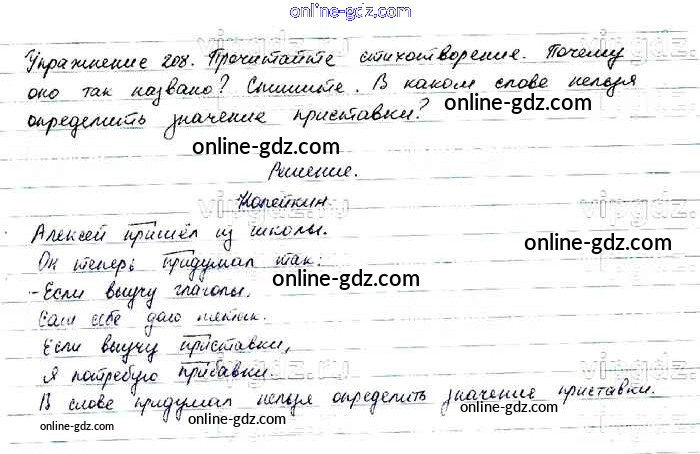 online-gdz.com
Упражнение 208. Прочитайте стихотворение. Почему
оно так названо? Спишите. В каком слове нельзя
online-gdz.com
определить значение приставки?
online-gdz.com
Решение.
Копейкин.
Алексей пришёл из школы.
online-gdz.com
Он теперь придумал так:
online-gdz.com
-Если выучу глаголы,
Сам себе даю пятак.
online-gdz.com
Если выучу приставки,
Я потребую прибавки.
online-gdz.com
В слове придумал нельзя определить значение приставки.
online-gdz.com
online-gdz.com
online-gdz.com